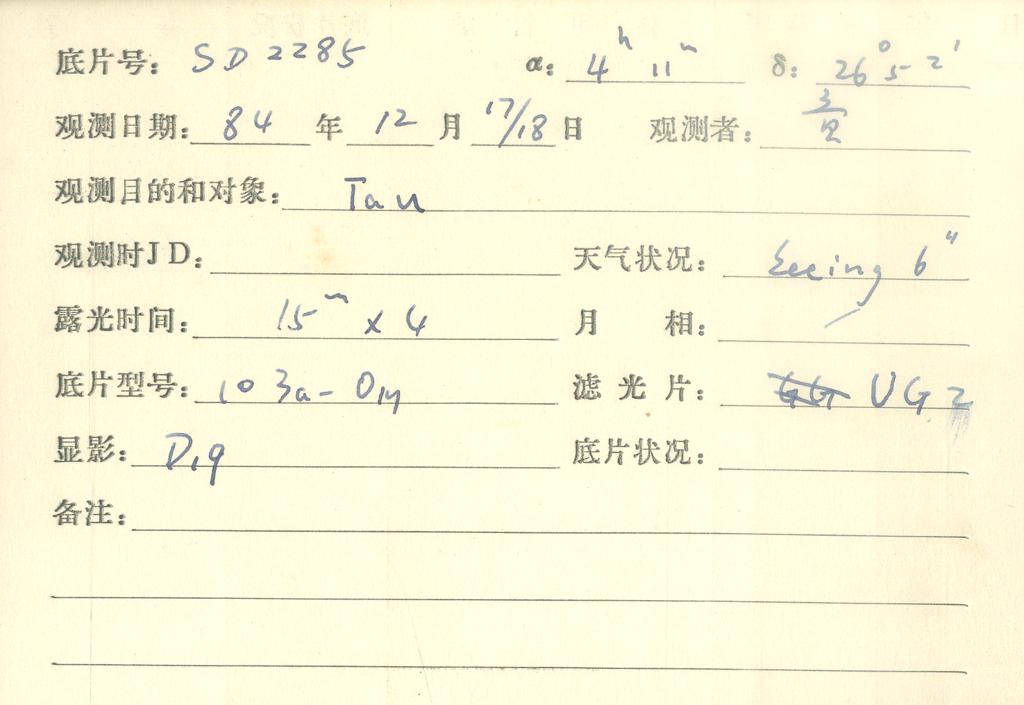 底片号: SD 2285 α: 4ʰ 11ᵐ δ: 26° 52′
观测日期: 84 年 12 月 17/18 日 观测者:
观测目的和对象: Tau
观测时JD: 天气状况: Seeing 6"
露光时间: 15ᵐ x 4 月 相: /
底片型号: 103a-O 滤光片: UG2
显影: D19 底片状况:
备注: